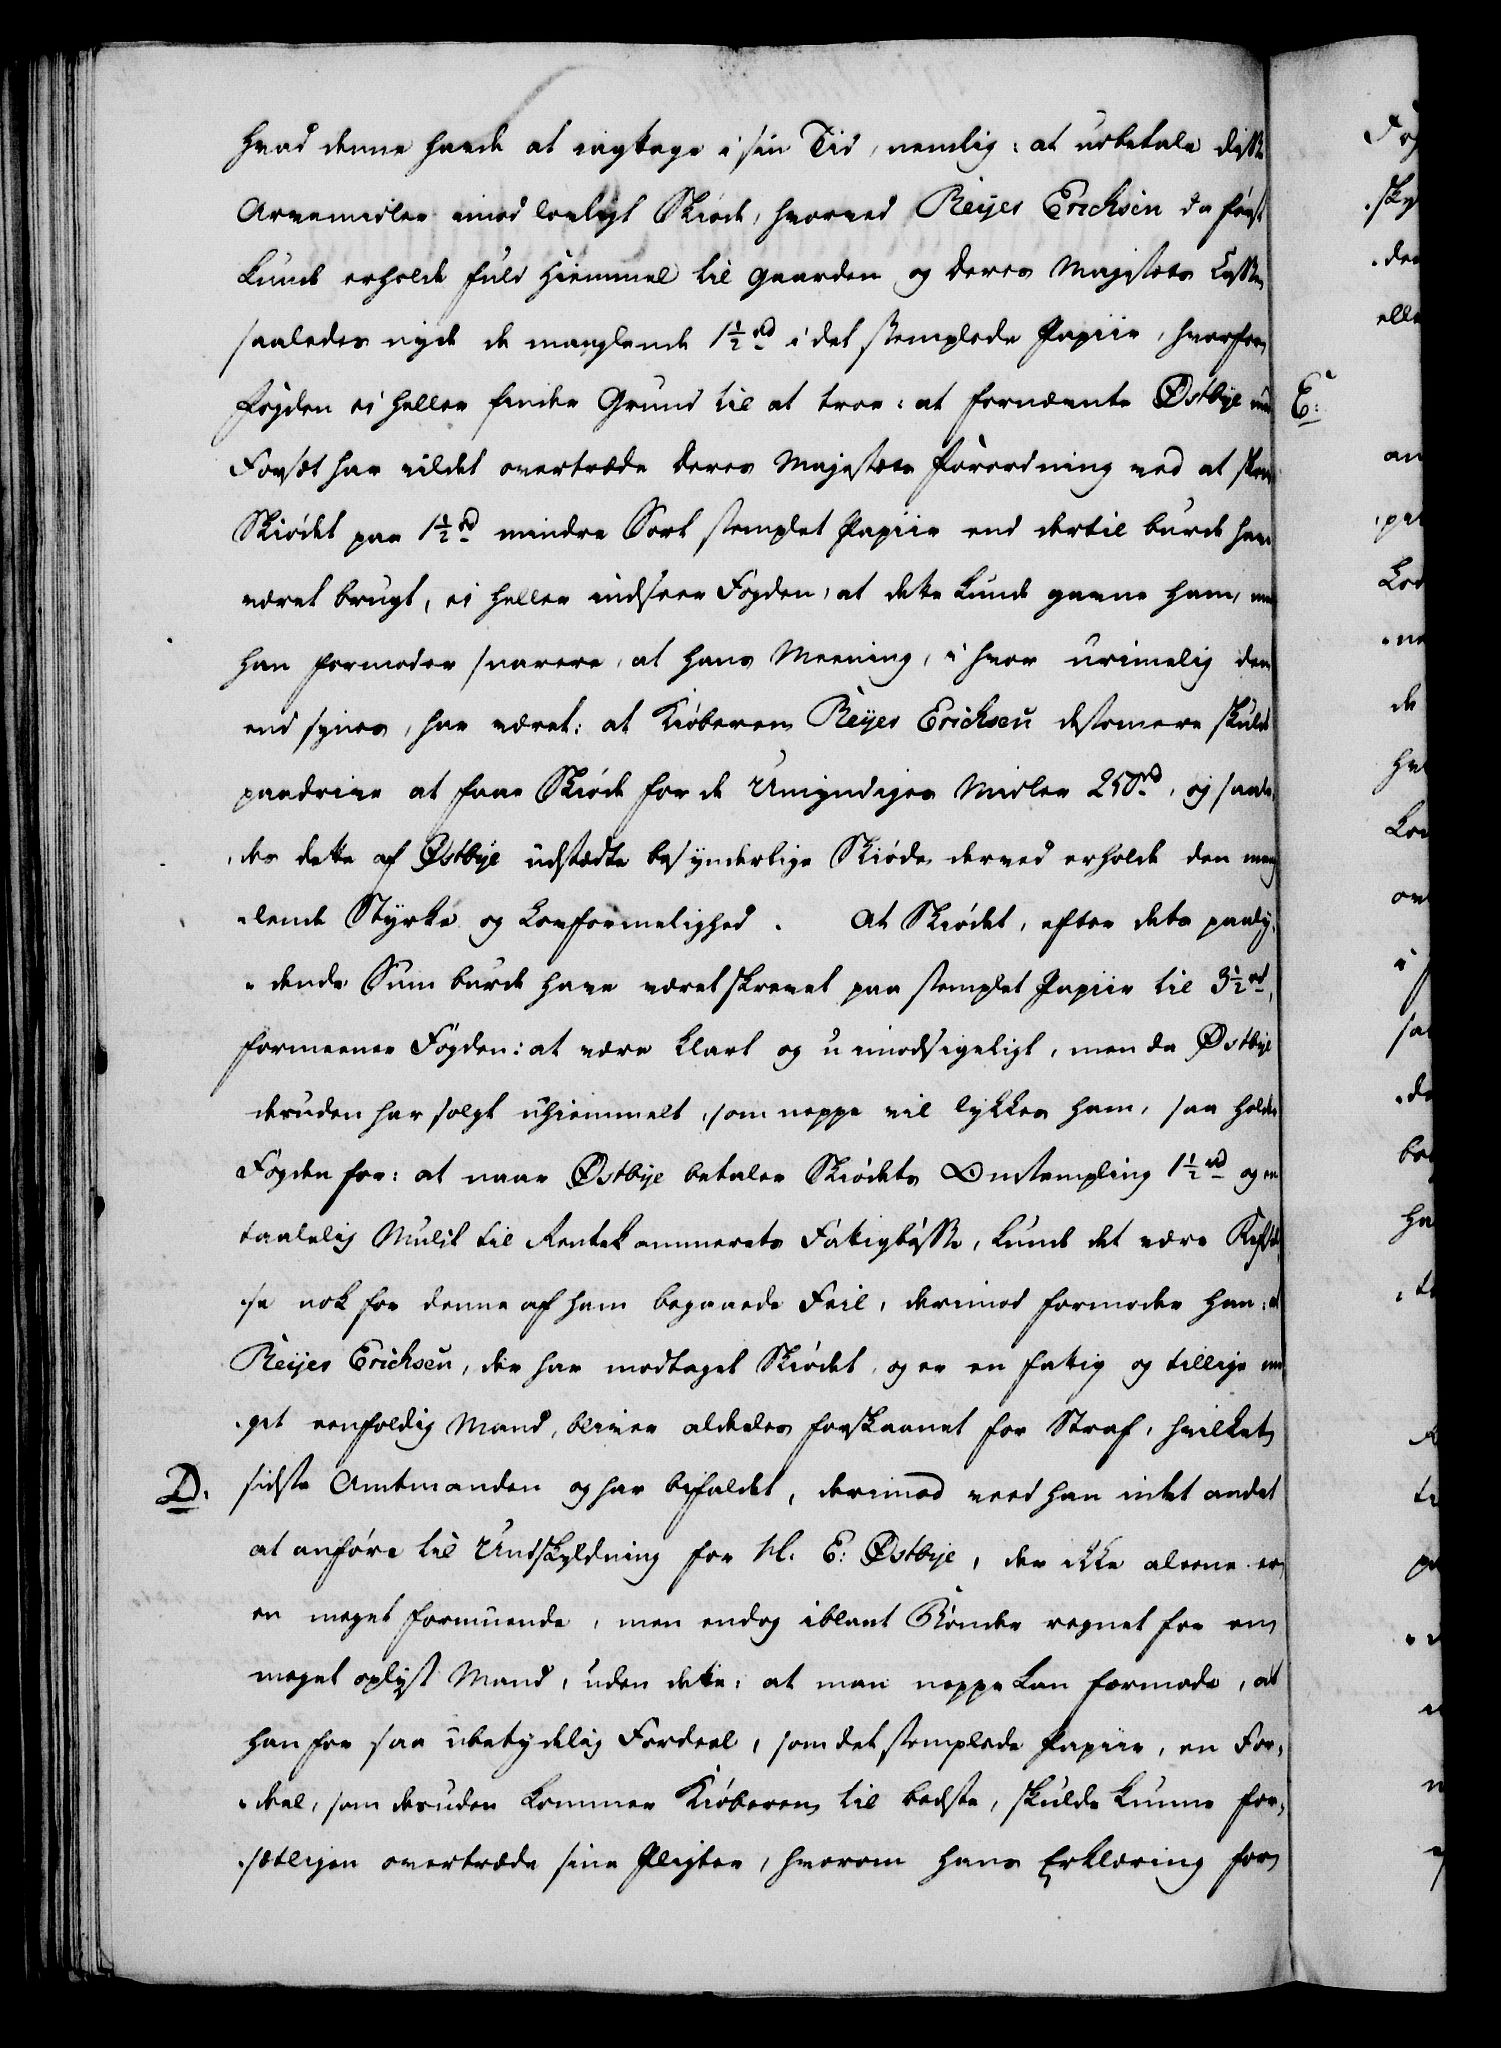 hvad denne havde at iagttage i sin Tid, nemlig: at udbetale disse
Arvemidler imod lovligt Skiøde, hvorved Reijer Erichsen da først
kunde erholde fuld Hiemmel til Gaarden og Deres Majestæts Casse
saaledes nyde de manglende 1½ rd i det stemplede Papiir, hvorfor
Fogden ei heller finder Grund til at troe: at fornævnte Østbye med
Forsæt har vildet overtræde Deres Majestæts Forordning ved at skrive
Skiødet paa 1½ rd mindre Sort stemplet Papiir end dertil burde have
været brugt, ei heller indseer Fogden, at dette kunde gavne ham, men
han formoder snarere, at hans Meening, i hvor urimelig den
end synes, har været: at Kiøberen Reijer Erichsen destomere skulde
paadrive at faae Skiøde for de Umyndiges Midler 250 rd, og saale-
des dette af Østbye udstædte besynderlige Skiøde derved erholde den mang-
lende Styrke og Lovformelighed. At Skiødet, efter dets paaly-
dende Sum burde have været skrevet paa stemplet Papiir til 3½ rd,
formeener Fogden: at være klart og uimodsigeligt, men da Østbye
desuden har solgt uhiemmelt, som neppe vil lykkes ham, saa holder
Fogden for: at naar Østbye betaler Skiødets Omstempling 1½ rd og en
taalelig Mulct til Rentekammerets Fatigbøsse, kunde det være Refsel-
se nok for denne af ham begaaede Feil, derimod formoder han: at
Reijer Erichsen, der har modtaget Skiødet, og er en fatig og tillige me-
get eenfoldig Mand, bliver aldeles forskaanet for Straf, hvilket
D. sidste Amtmanden og har bifaldet, derimod veed han intet andet
at anføre til Undskyldning for N. E: Østbye, der ikke aleene er
en meget formuende, men endog iblant Bønder regnet for en
meget oplyst Mand, uden dette: at man neppe kan formode, at
han for saa ubetydelig Fordeel, som det stemplede Papiir, en For-
deel, som desuden kommer Kiøberen til bedste, skulde kunne for-
sætligen overtræde sine Pligter, hvorom hans Erklæring for